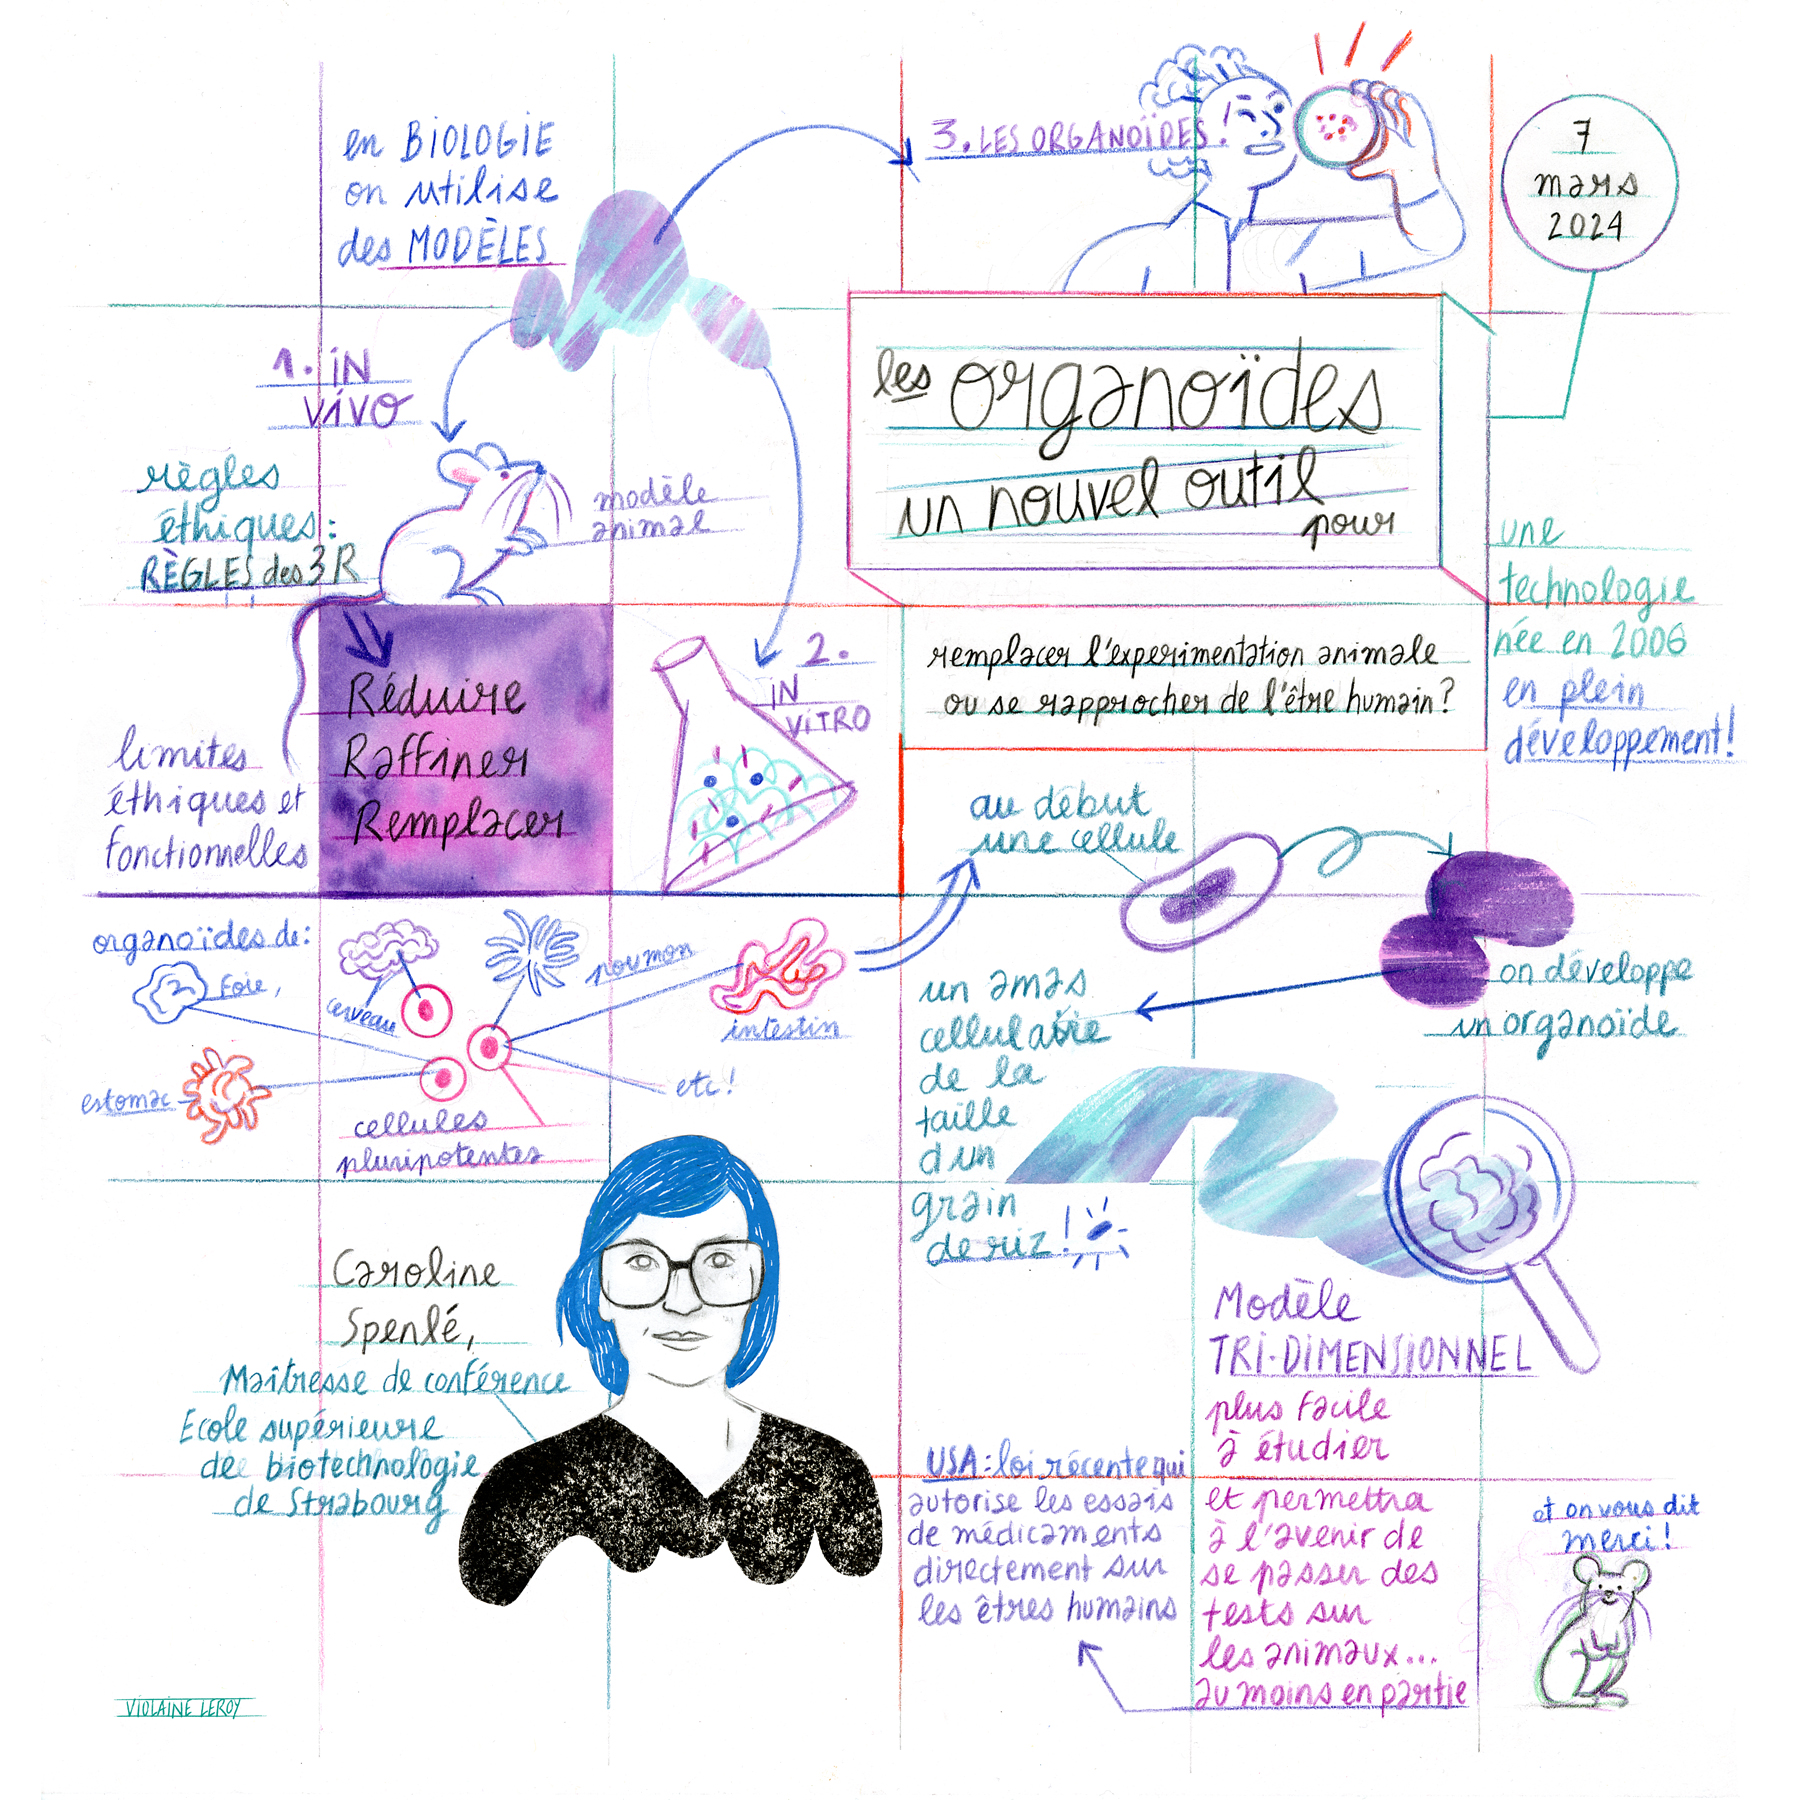 en BIOLOGIE
on utilise
des MODÈLES
3. LES ORGANOÏDES !
7
mars
2024
les organoïdes
un nouvel outil
pour
remplacer l'experimentation animale
ou se rapprocher de l'être humain ?
une
technologie
née en 2006
en plein
développement !
1. iN
vivo
modèle
animal
règles
éthiques :
RÈGLES des 3R
Réduire
Raffiner
Remplacer
limites
éthiques et
fonctionnelles
2.
iN
ViTRO
organoïdes de :
foie,
cerveau
poumon
intestin
estomac
etc !
cellules
pluripotentes
au début
une cellule
on développe
un organoïde
un amas
cellulaire
de la
taille
d'un
grain
de riz !
Modèle
TRI-DiMENSiONNEL
plus facile
à étudier
et permettra
à l'avenir de
se passer des
tests sur
les animaux...
au moins en partie
USA : loi récente qui
autorise les essais
de médicaments
directement sur
les êtres humains
Caroline
Spenlé,
Maîtresse de conférence
Ecole supérieure
de biotechnologie
de Strabourg
et on vous dit
merci !
ViOLAiNE LEROY